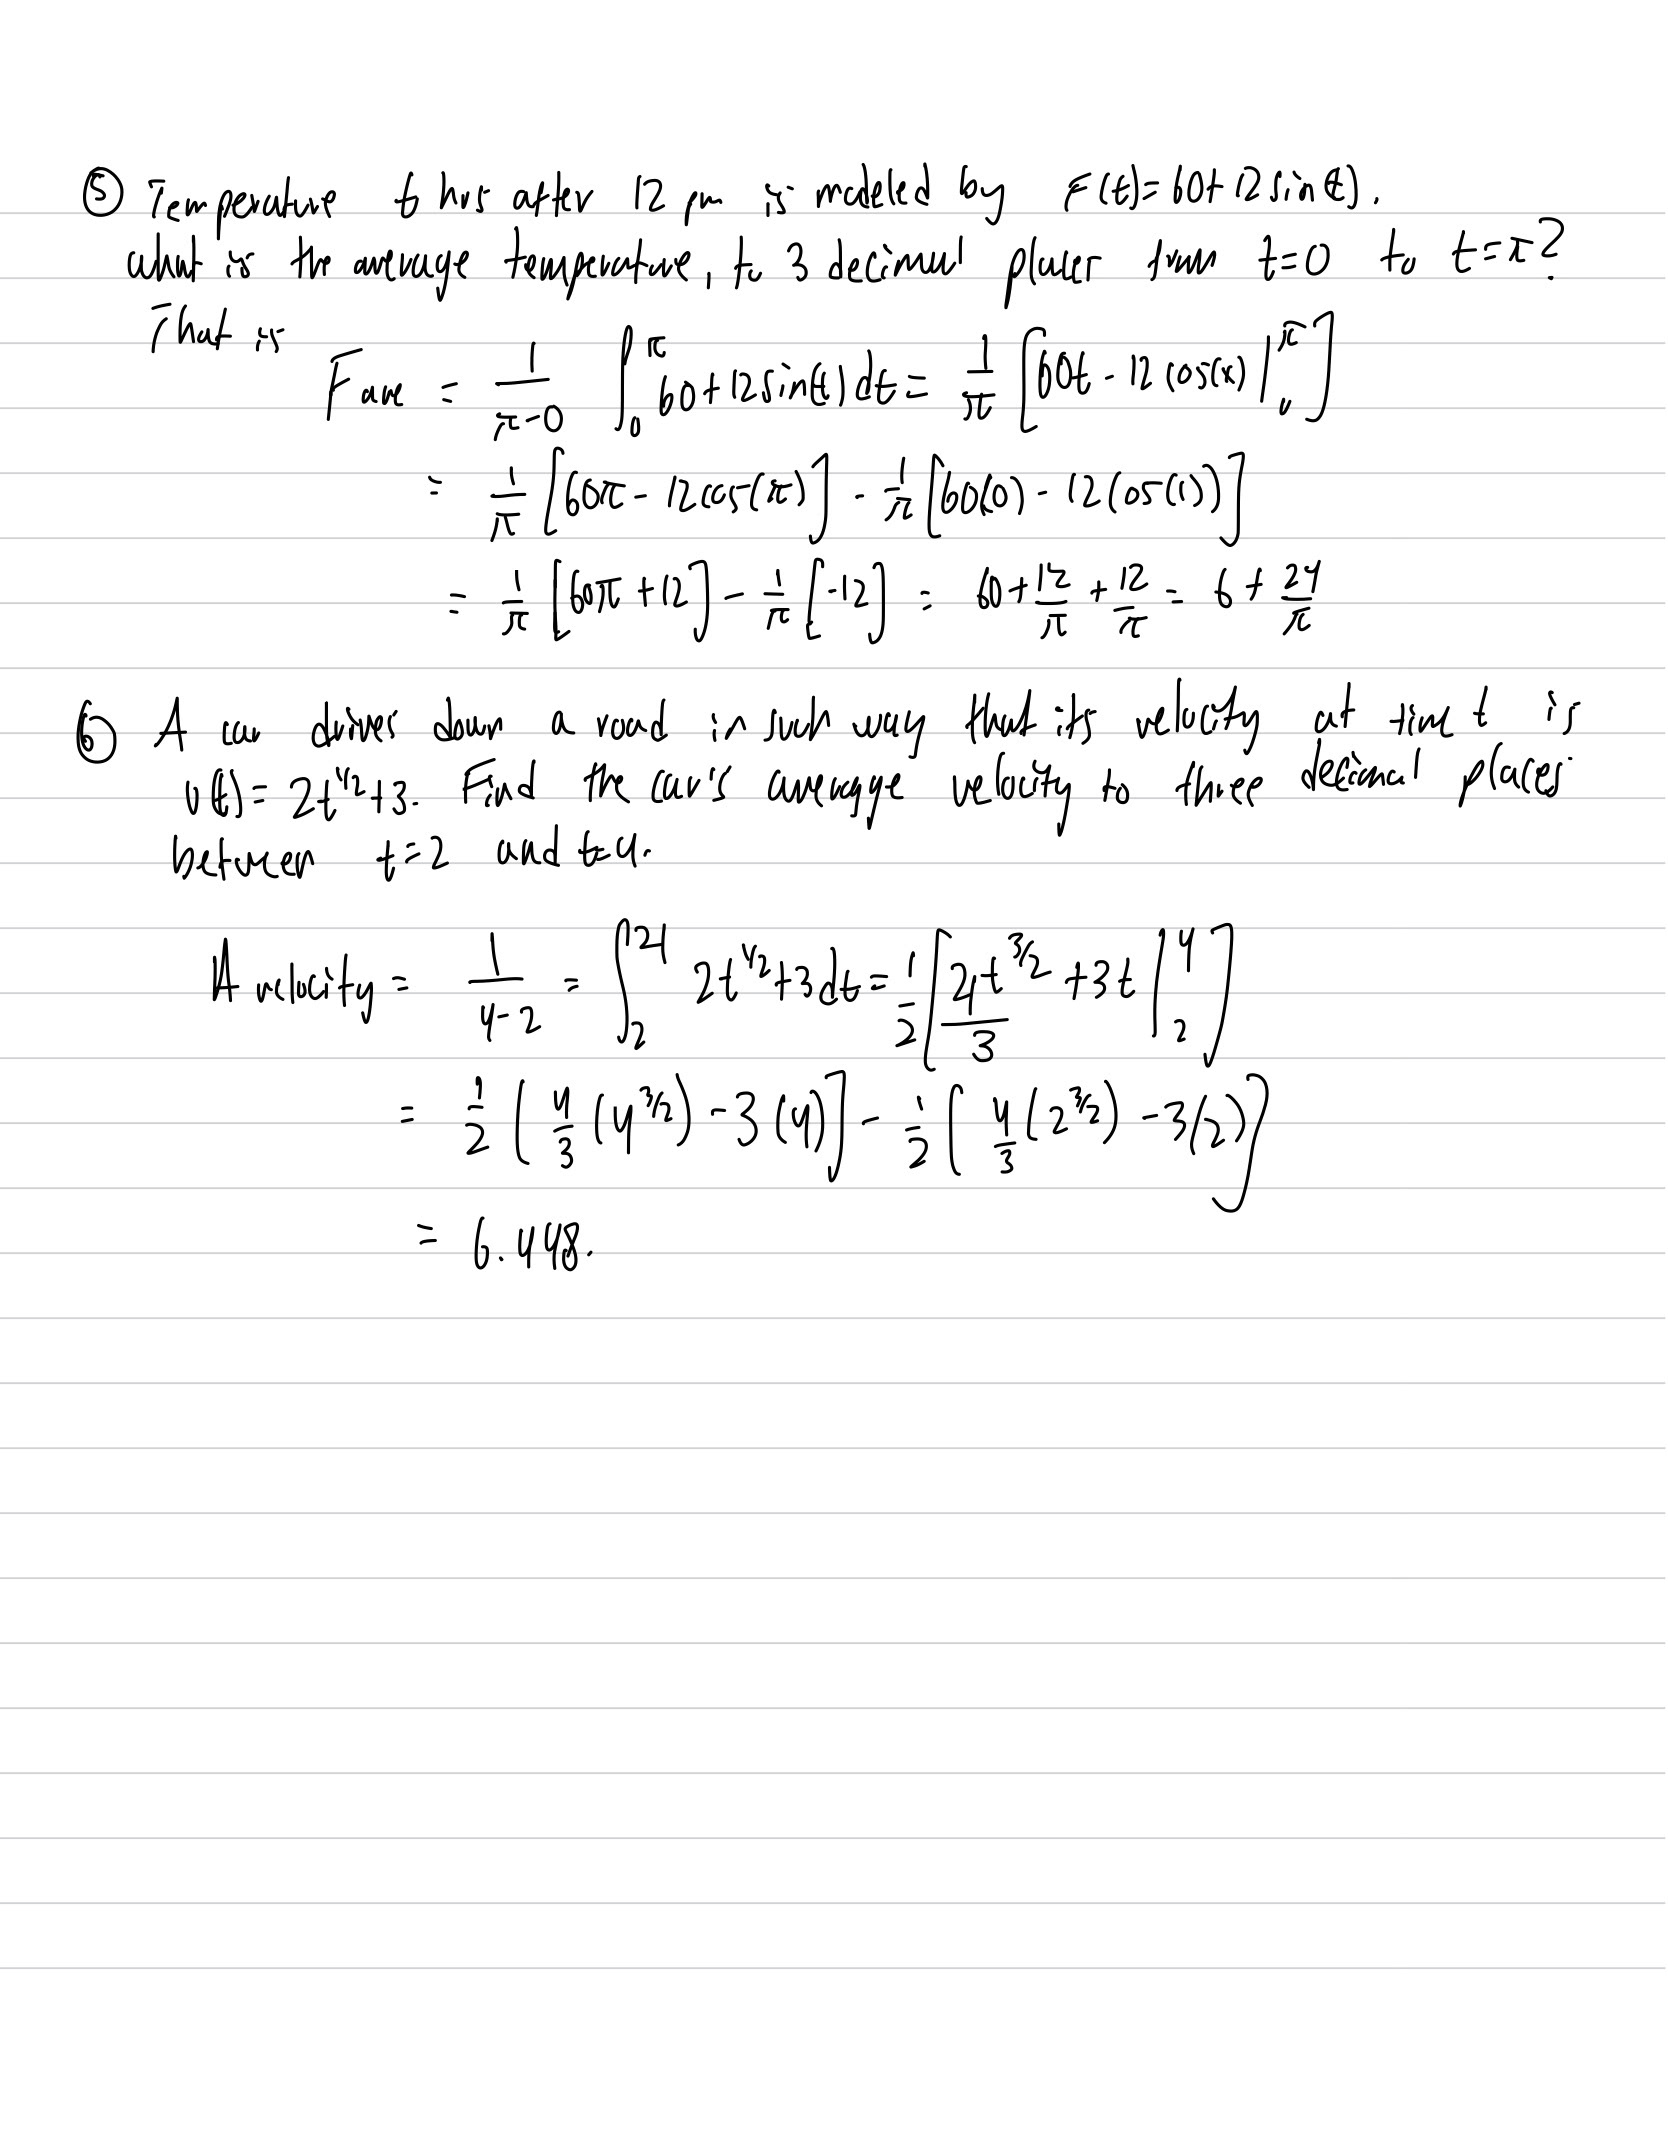 ⑤ Temperature t hrs after 12 pm is modeled by F(t)=60+12sin(t).
what is the average temperature, to 3 decimal places from t=0 to t=π?
That is
F ave = 1/(π-0) ∫_0^π 60+12sin(t)dt = 1/π [60t - 12cos(x) |_0^π]
= 1/π [60π - 12cos(π)] - 1/π [60(0) - 12(cos(1))]
= 1/π [60π +12] - 1/π [-12] = 60 + 12/π + 12/π = 6 + 24/π
⑥ A car drives down a road in such way that its velocity at time t is
v(t)= 2t^1/2+3. Find the car's averagge velocity to three decimal places
between t=2 and t=4.
A velocity = 1/(4-2) = ∫_2^24 2t^1/2+3dt = 1/2 [24t^3/2/3 +3t |_2^4]
= 1/2 [4/3 (4^3/2) - 3(4)] - 1/2 [4/3 (2^3/2) - 3(2)]
= 6.448.